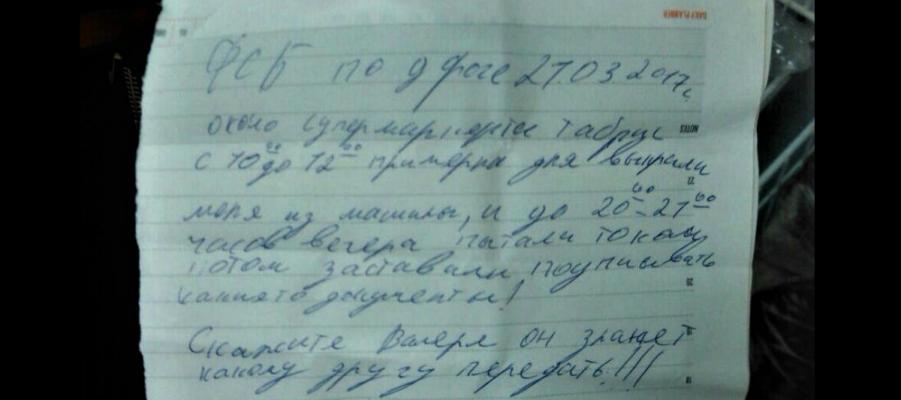 DAILY PLANNER
ФСБ по дроге 27.03.2017г
около супермаркета Табрис
NOTES
с 10⁰⁰ до 12⁰⁰ примерна для выкрали
меня из машины, и до 20⁰⁰-21⁰⁰
часов вечера пытали током
потом заставили подписывать
какието документы!
20
Скажите Валере он знает
какому другу передать!!!!